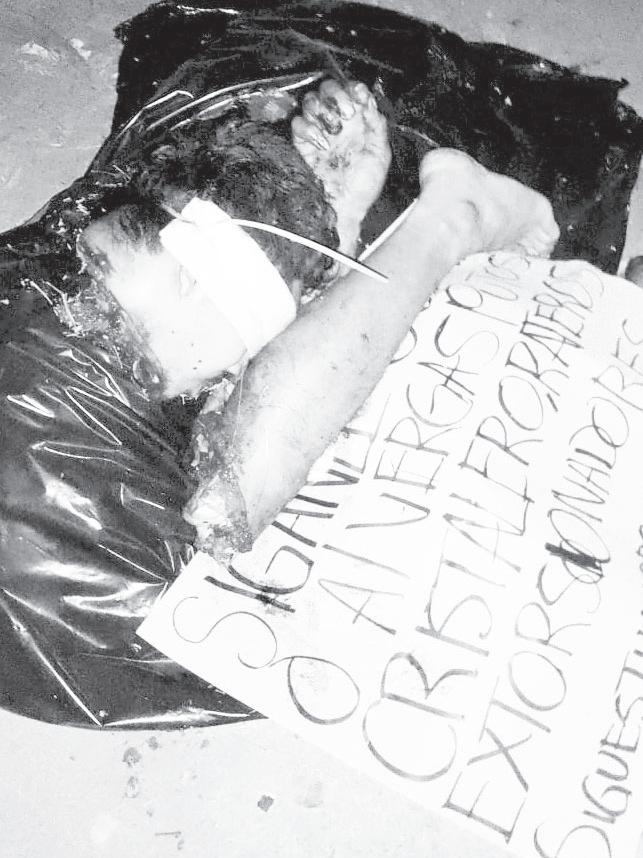 SIGANLE
O AI VERGAS
CRISTALERO, RATEROS
EXTORSIONADORES
SIGUES TU